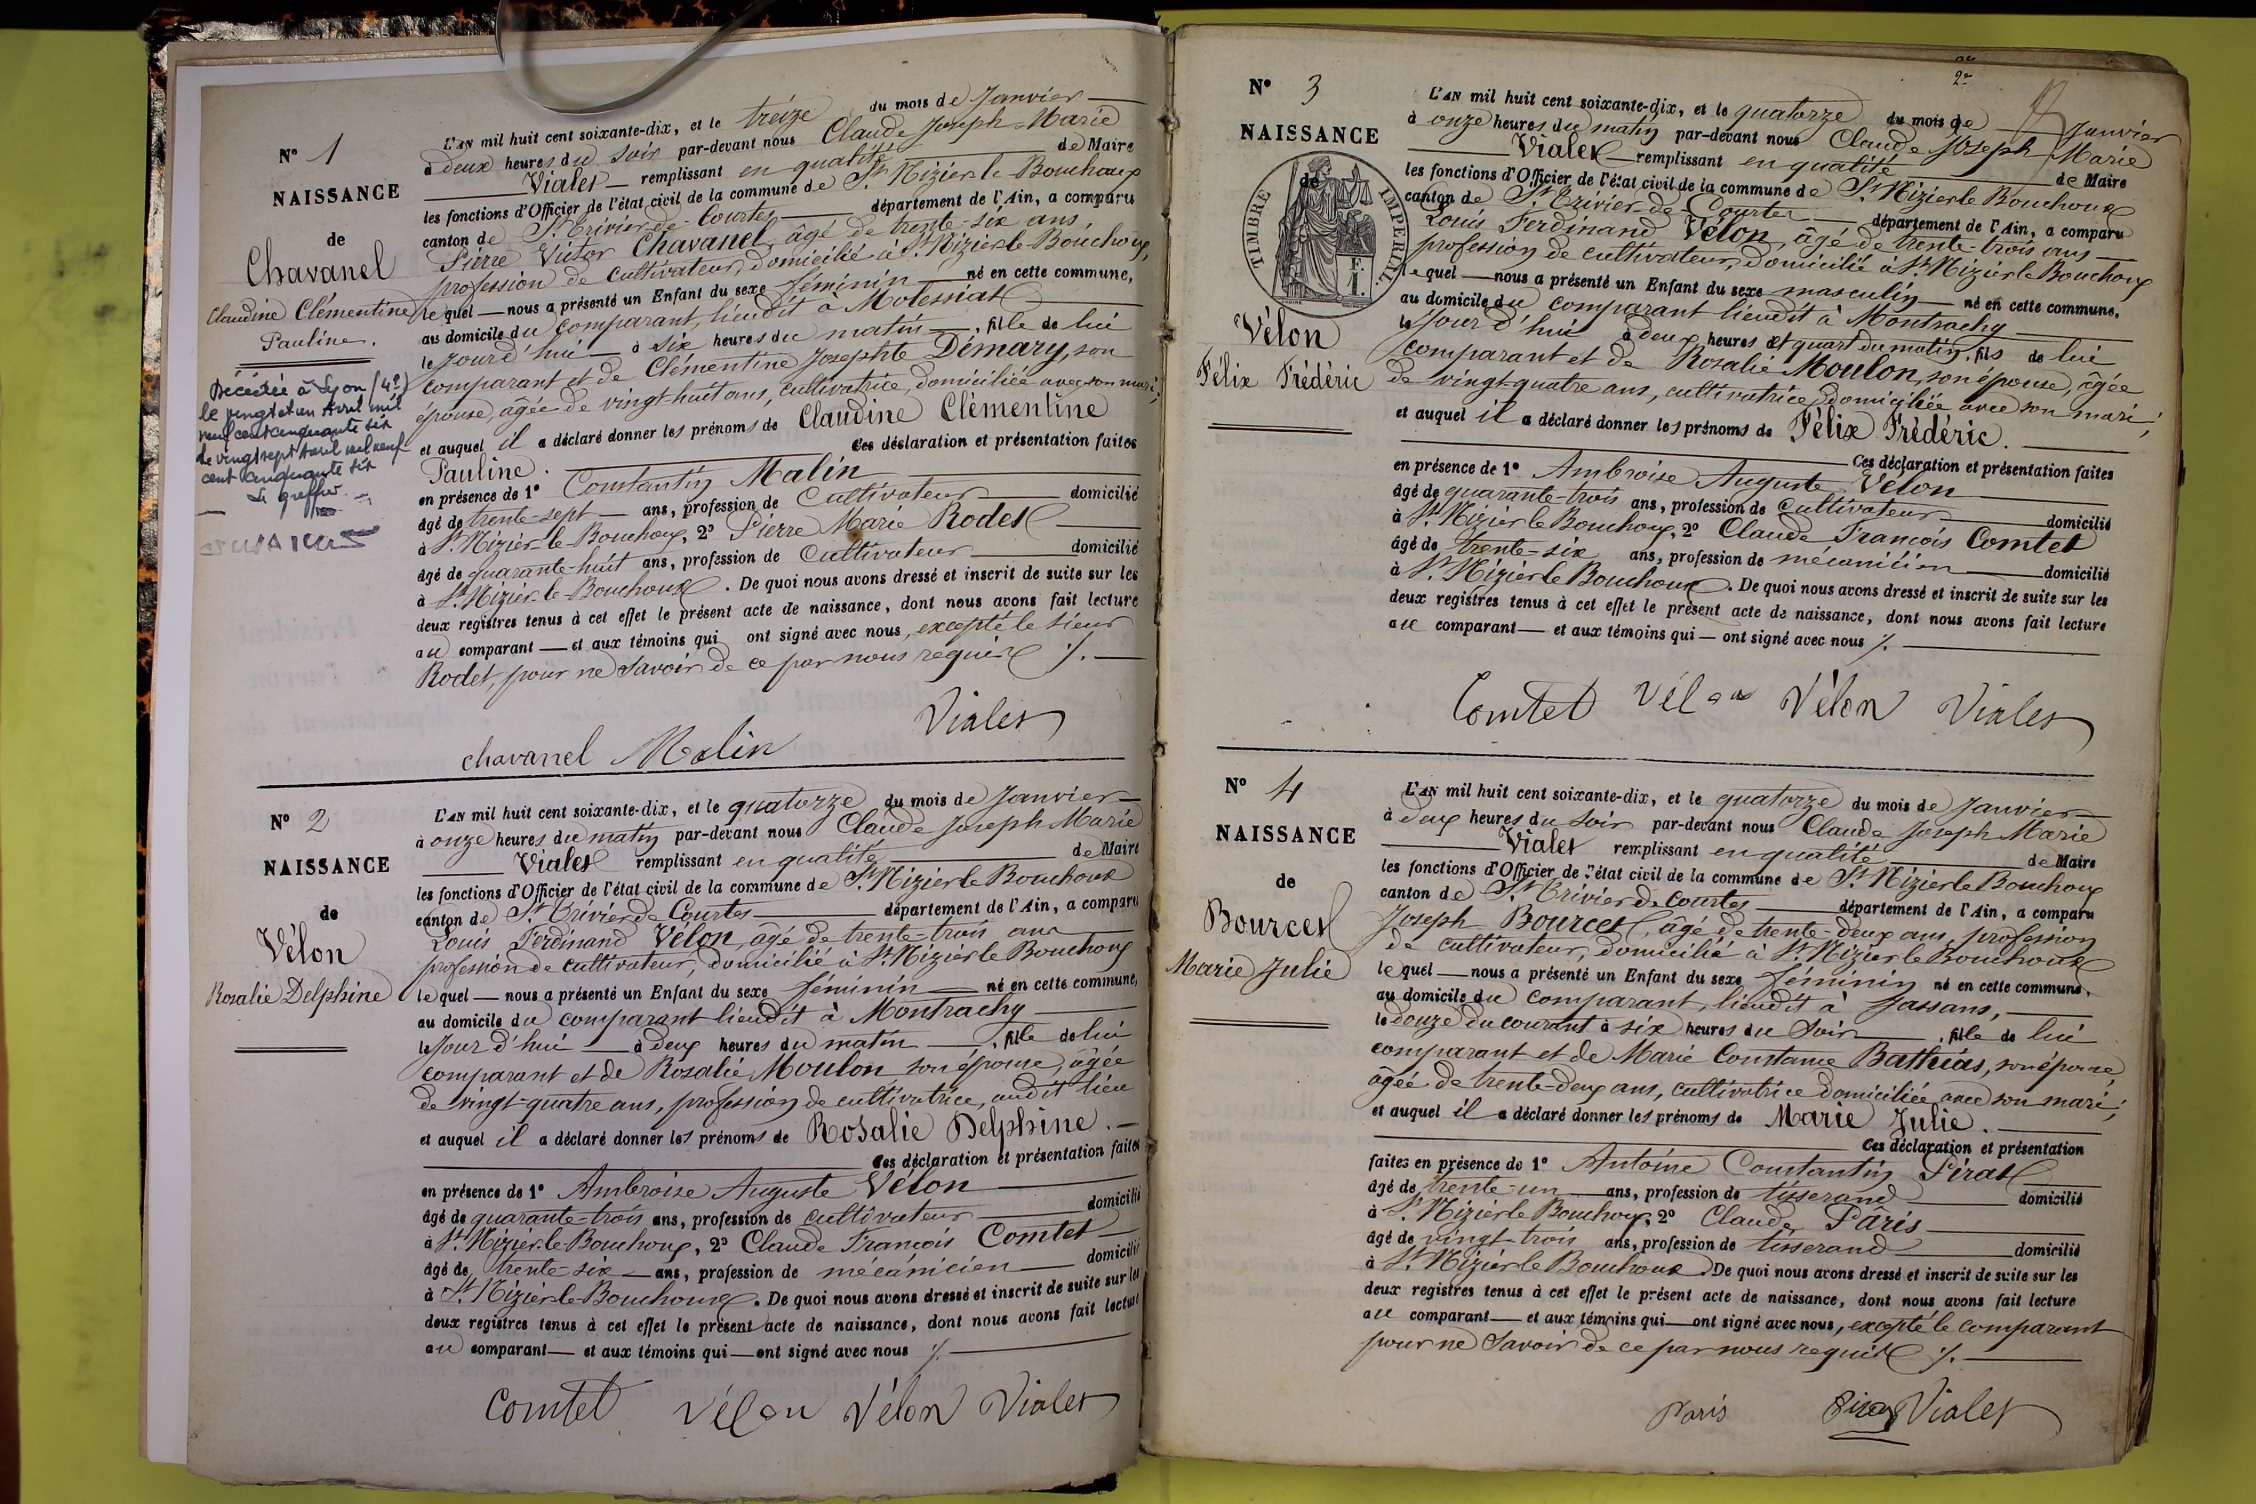 N° 1
NAISSANCE
de
Chavanel
Claudine Clémentine
Pauline.
Décédée à Lyon (4e)
le vingt et un Avril mil
neuf cent cinquante six
Le vingt sept Avril mil neuf
cent cinquante six
Le greffier
L'AN mil huit cent soixante-dix, et le treize du mois de Janvier
à deux heures du soir par-devant nous Claude Joseph Marie
Vialet remplissant en qualité de Maire
les fonctions d'Officier de l'état civil de la commune de St Nizier-le-Bouchoux
canton de St Trivier-de-Courtes département de l'Ain, a comparu
Pierre Victor Chavanel, âgé de trente-six ans,
profession de cultivateur, domicilié à St Nizier-le-Bouchoux,
lequel nous a présenté un Enfant du sexe féminin né en cette commune,
au domicile du comparant, lieudit à Molessiat
le jour d'hui à six heures du matin, fille de lui
comparant et de Clémentine Josephte Démary, son
épouse, âgée de vingt huit ans, cultivatrice, domiciliée avec son mari;
et auquel il a déclaré donner les prénoms de Claudine Clémentine
Pauline. Ces déclaration et présentation faites
en présence de 1° Constantin Malin
âgé de trente-sept ans, profession de Cultivateur domicilié
à St Nizier-le-Bouchoux, 2° Pierre Marie Rodet
âgé de quarante-huit ans, profession de Cultivateur domicilié
à St Nizier-le-Bouchoux. De quoi nous avons dressé et inscrit de suite sur les
deux registres tenus à cet effet le présent acte de naissance, dont nous avons fait lecture
au comparant et aux témoins qui ont signé avec nous, excepté le sieur
Rodet, pour ne savoir de ce par nous requis ./.
Vialet
chavanel Malin
N° 2
NAISSANCE
de
Vélon
Rosalie Delphine
L'AN mil huit cent soixante-dix, et le quatorze du mois de Janvier
à onze heures du matin par-devant nous Claude Joseph Marie
Vialet remplissant en qualité de Maire
les fonctions d'Officier de l'état civil de la commune de St Nizier le Bouchoux
canton de St Trivier de Courtes département de l'Ain, a comparu
Louis Ferdinand Vélon, âgé de trente-trois ans
profession de cultivateur, domicilié à St Nizier le Bouchoux
lequel nous a présenté un Enfant du sexe féminin né en cette commune,
au domicile du comparant lieudit à Montrachy
le jour d'hui à deux heures du matin, fille de lui
comparant et de Rosalie Moulon son épouse, âgée
de vingt-quatre ans, profession de cultivatrice, audit lieu
et auquel il a déclaré donner les prénoms de Rosalie Delphine.
Ces déclaration et présentation faites
en présence de 1° Ambroise Auguste Vélon
âgé de quarante-trois ans, profession de cultivateur domicilié
à St Nizier-le-Bouchoux, 2° Claude François Comtet
âgé de trente-six ans, profession de mécanicien domicilié
à St Nizier-le-Bouchoux. De quoi nous avons dressé et inscrit de suite sur les
deux registres tenus à cet effet le présent acte de naissance, dont nous avons fait lecture
au comparant et aux témoins qui ont signé avec nous ./.
Comtet Vélon Vélon Vialet
2e
N° 3
NAISSANCE
de
TIMBRE IMPERIAL
Vélon
Félix Frédéric
L'AN mil huit cent soixante-dix, et le quatorze du mois de Janvier
à onze heures du matin par-devant nous Claude Joseph Marie
Vialet remplissant en qualité de Maire
les fonctions d'Officier de l'état civil de la commune de St Nizier le Bouchoux
canton de St Trivier-de-Courtes département de l'Ain, a comparu
Louis Ferdinand Vélon, âgé de trente-trois ans
profession de cultivateur, domicilié à St Nizier le Bouchoux
lequel nous a présenté un Enfant du sexe masculin né en cette commune,
au domicile du comparant lieudit à Montrachy
le jour d'hui à deux heures et quart du matin, fils de lui
comparant et de Rosalie Moulon, son épouse, âgée
de vingt-quatre ans, cultivatrice, domiciliée avec son mari;
et auquel il a déclaré donner les prénoms de Félix Frédéric.
Ces déclaration et présentation faites
en présence de 1° Ambroise Auguste Vélon
âgé de quarante-trois ans, profession de Cultivateur domicilié
à St Nizier le Bouchoux, 2° Claude François Comtet
âgé de trente-six ans, profession de mécanicien domicilié
à St Nizier le Bouchoux. De quoi nous avons dressé et inscrit de suite sur les
deux registres tenus à cet effet le présent acte de naissance, dont nous avons fait lecture
au comparant et aux témoins qui ont signé avec nous ./.
Comtet Vélon Vélon Vialet
N° 4
NAISSANCE
de
Bourcet
Marie Julie
L'AN mil huit cent soixante-dix, et le quatorze du mois de Janvier
à deux heures du soir par-devant nous Claude Joseph Marie
Vialet remplissant en qualité de Maire
les fonctions d'Officier de l'état civil de la commune de St Nizier le Bouchoux
canton de St Trivier de Courtes département de l'Ain, a comparu
Joseph Bourcet, âgé de trente-deux ans, profession
de cultivateur, domicilié à St Nizier le Bouchoux
lequel nous a présenté un Enfant du sexe féminin né en cette commune,
au domicile du comparant, lieudit à Jassans,
le douze du courant à six heures du soir, fille de lui
comparant et de Marie Constance Bathias, son épouse
âgée de trente-deux ans, cultivatrice domiciliée avec son mari;
et auquel il a déclaré donner les prénoms de Marie Julie.
Ces déclaration et présentation
faites en présence de 1° Antoine Constantin Pirat
âgé de trente-un ans, profession de tisserand domicilié
à St Nizier le Bouchoux, 2° Claude Pâris
âgé de vingt-trois ans, profession de tisserand domicilié
à St Nizier le Bouchoux. De quoi nous avons dressé et inscrit de suite sur les
deux registres tenus à cet effet le présent acte de naissance, dont nous avons fait lecture
au comparant et aux témoins qui ont signé avec nous, excepté le comparant
pour ne savoir de ce par nous requis ./.
Paris Pirat Vialet